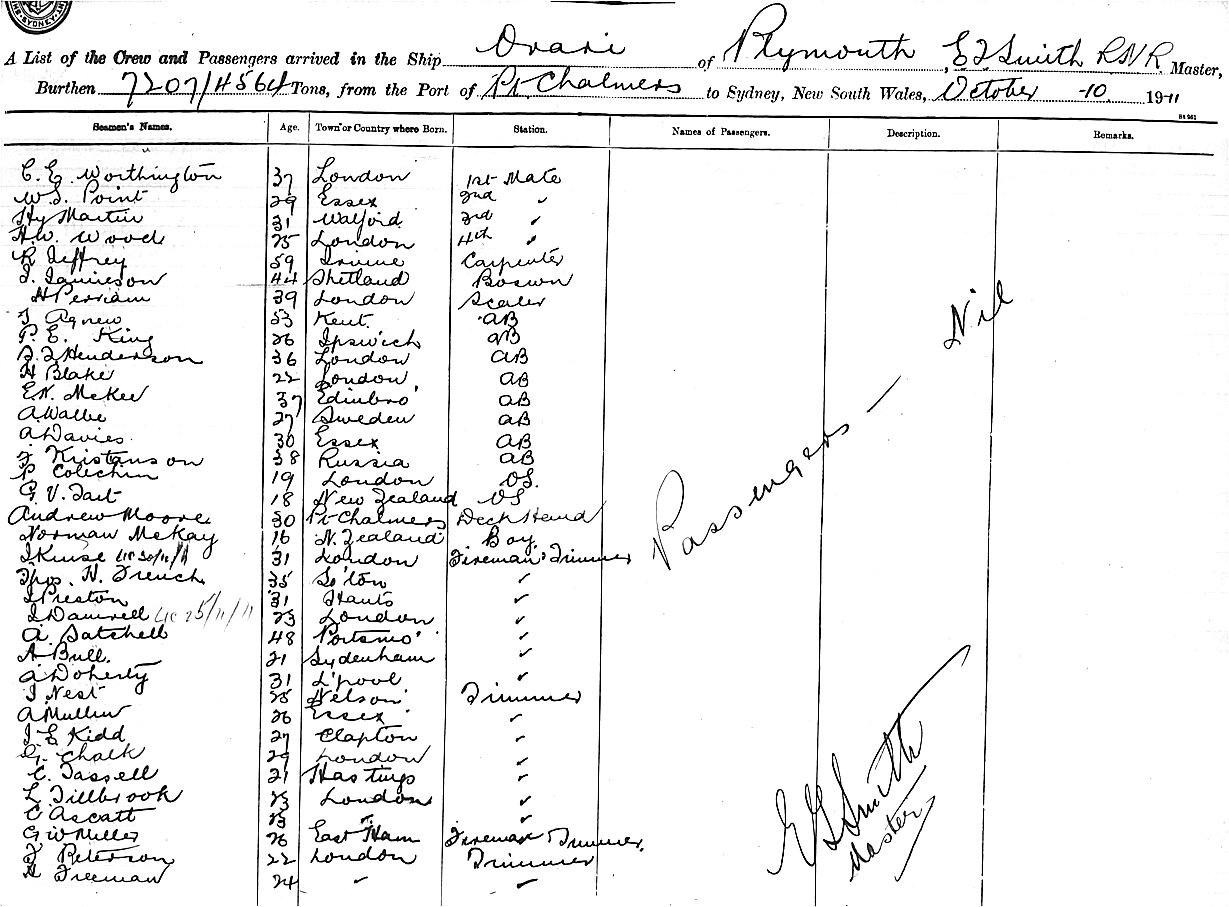 SYDNEY
A List of the Crew and Passengers arrived in the Ship Orari of Plymouth, E J Smith RNR Master,
Burthen 7207/4564 Tons, from the Port of Pt Chalmers to Sydney, New South Wales, October 10 1911
Seamen's Names. Age. Town or Country where Born. Station. Names of Passengers. Description. Remarks.
C. E. Worthington 37 London 1st Mate
W. S. Point 29 Essex 2nd "
Hy Martin 31 Walford 3rd "
H. W. Wood 25 London 4th "
R Jeffrey 59 Irvine Carpenter
J. Jamieson 44 Shetland Boswn
H Perriam 39 London
J Agnew 53 Kent. AB
P. E. King 26 Ipswich AB
Henderson 36 London AB
H Blake 22 London AB
E. N. McKee 37 Edinbro' AB
A Wallie 27 Sweden AB
A Davies 30 Essex AB
J Kristanson 38 Russia AB
P Colechin 19 London OS.
G. V. Tait 18 New Zealand OS
Andrew Moore 30 Pt Chalmers Deck Hand
Norman McKay 16 N. Zealand Boy
31 London Fireman & Trimmer
Thos. H. French 35 So'ton "
J Preston 31 Hants "
J Damrell 25/11/11 23 London "
A. Satchell 48 Portsmo' "
A Bull. 21 Sydenham "
A Doherty 31 L'pool "
J Nest 25 Nelson Trimmer
A Mullin 26 Essex "
J E Kidd 27 Clapton "
G. Chalk 29 London "
C. Tassell 21 Hastings "
L Tillbrook 23 London "
C Ascatt 23 " "
G W Miller 26 East Ham Fireman Trimmer.
J Peterson 22 London Trimmer
H Freeman 24 " "
Passengers — Nil
E J Smith
Master